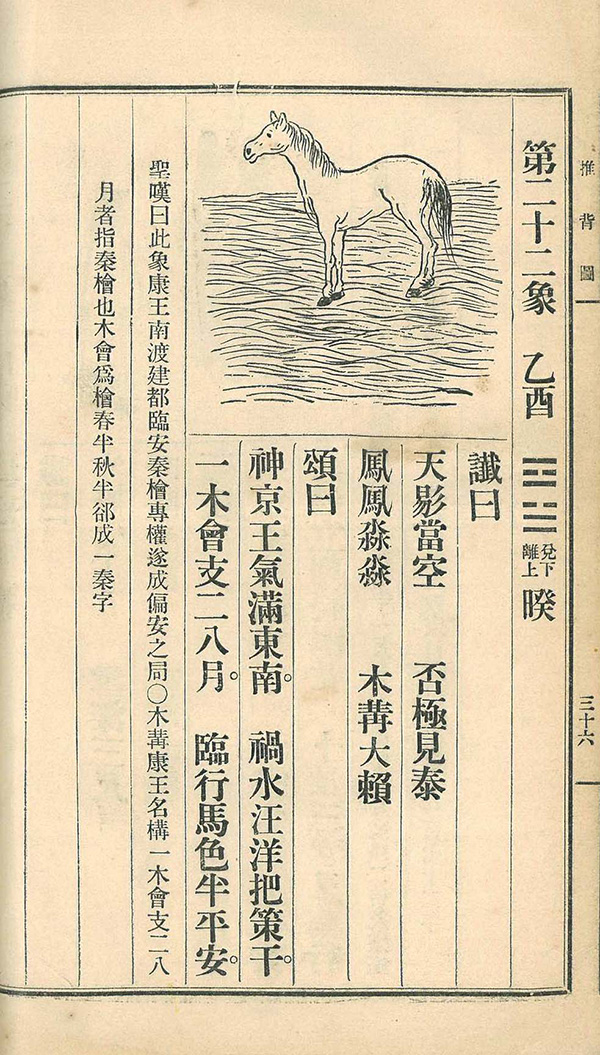 推背圖
三十六
第二十二象 乙酉 ䷥ 兌下離上 暌
讖曰
天影當空 否極見泰
鳳鳳淼淼 木冓大賴
頌曰
神京王氣滿東南。 禍水汪洋把策干。
一木會支二八月。 臨行馬色半平安。
聖嘆曰此象康王南渡建都臨安秦檜專權遂成偏安之局○木冓康王名構一木會支二八
月者指秦檜也木會爲檜春半秋半郤成一秦字